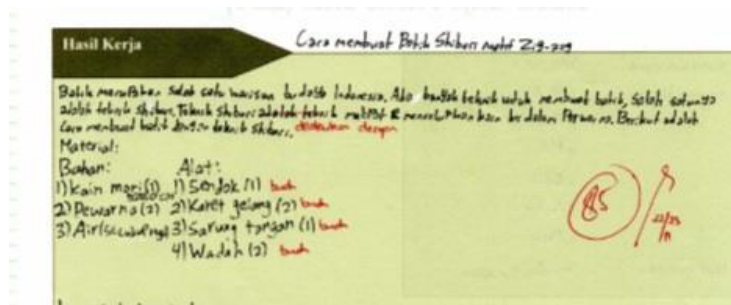 Hasil Kerja
Cara membuat Batik Shibori motif Zig-zag
Batik merupakan salah satu warisan budaya Indonesia. Ada banyak teknik untuk membuat batik, salah satunya
adalah teknik shibori. Teknik shibori adalah teknik melipat & mencelupkan kain ke dalam Pewarna. Berikut adalah
Cara membuat batik dengan teknik shibori. dengan
Material:
Bahan: Alat:
1) Kain mori (1) 1) Sendok (1) buah
2) Pewarna (2) 2) Karet gelang (2) buah
3) Air (secukupnya) 3) Sarung tangan (1) buah
4) Wadah (2) buah
85